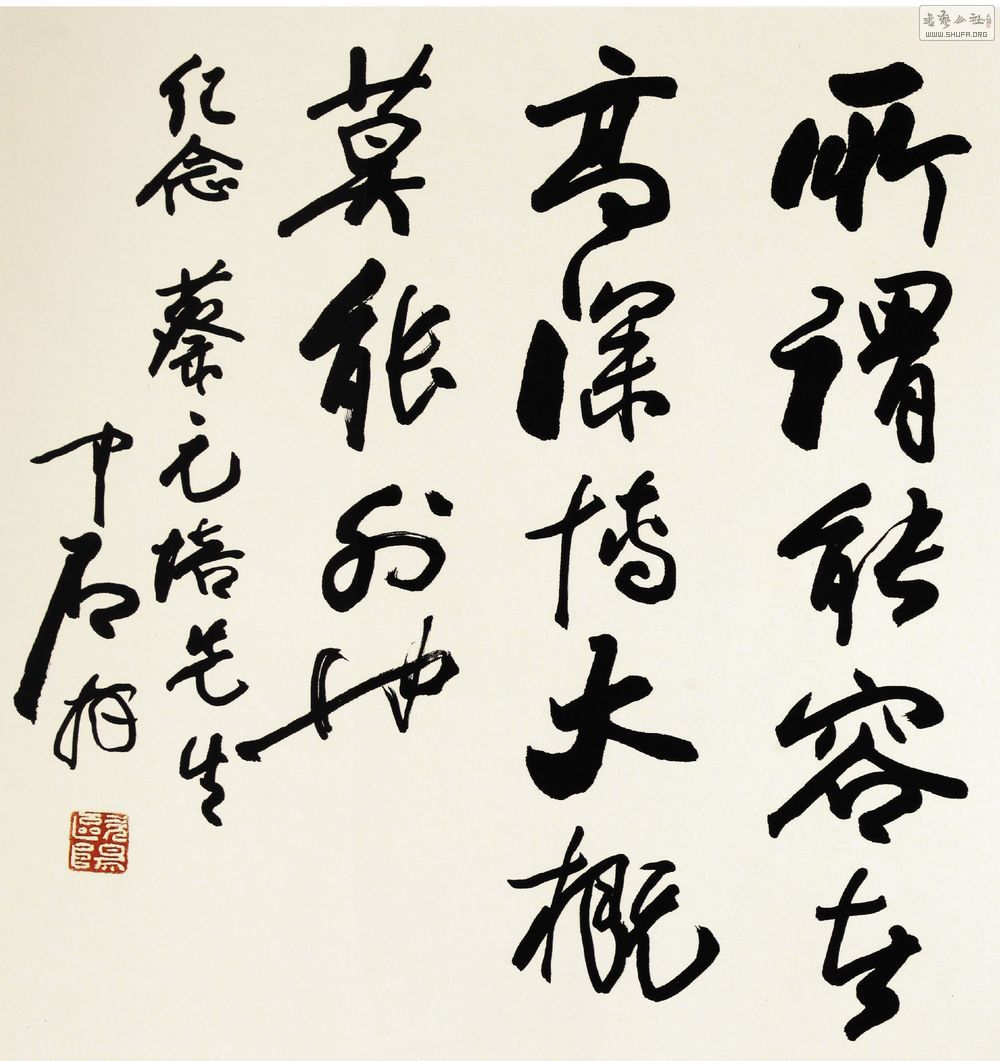 所谓能容者
高深博大概
莫能外也
纪念 蔡元培先生
中石拜
書藝公社
WWW.SHUFA.ORG